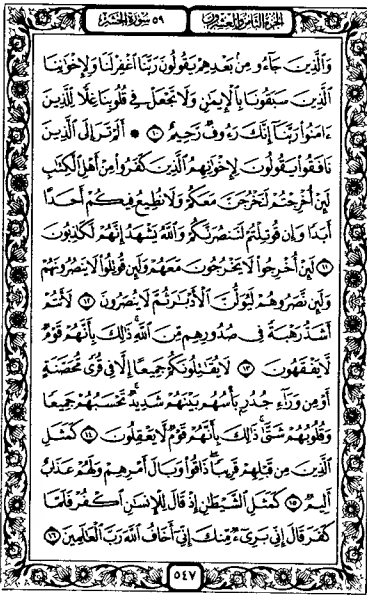 الجزء الثامن والعشرون
٥٩ سورة الحشر
وَٱلَّذِينَ جَآءُو مِنۢ بَعْدِهِمْ يَقُولُونَ رَبَّنَا ٱغْفِرْ لَنَا وَلِإِخْوَٰنِنَا
ٱلَّذِينَ سَبَقُونَا بِٱلْإِيمَٰنِ وَلَا تَجْعَلْ فِى قُلُوبِنَا غِلًّا لِّلَّذِينَ
ءَامَنُوا۟ رَبَّنَآ إِنَّكَ رَءُوفٌ رَّحِيمٌ ١٠ ۞ أَلَمْ تَرَ إِلَى ٱلَّذِينَ
نَافَقُوا۟ يَقُولُونَ لِإِخْوَٰنِهِمُ ٱلَّذِينَ كَفَرُوا۟ مِنْ أَهْلِ ٱلْكِتَٰبِ
لَئِنْ أُخْرِجْتُمْ لَنَخْرُجَنَّ مَعَكُمْ وَلَا نُطِيعُ فِيكُمْ أَحَدًا
أَبَدًا وَإِن قُوتِلْتُمْ لَنَنصُرَنَّكُمْ وَٱللَّهُ يَشْهَدُ إِنَّهُمْ لَكَٰذِبُونَ
١١ لَئِنْ أُخْرِجُوا۟ لَا يَخْرُجُونَ مَعَهُمْ وَلَئِن قُوتِلُوا۟ لَا يَنصُرُونَهُمْ
وَلَئِن نَّصَرُوهُمْ لَيُوَلُّنَّ ٱلْأَدْبَٰرَ ثُمَّ لَا يُنصَرُونَ ١٢ لَأَنتُمْ
أَشَدُّ رَهْبَةً فِى صُدُورِهِم مِّنَ ٱللَّهِ ۚ ذَٰلِكَ بِأَنَّهُمْ قَوْمٌ
لَّا يَفْقَهُونَ ١٣ لَا يُقَٰتِلُونَكُمْ جَمِيعًا إِلَّا فِى قُرًى مُّحَصَّنَةٍ
أَوْ مِن وَرَآءِ جُدُرٍۭ ۚ بَأْسُهُم بَيْنَهُمْ شَدِيدٌ ۚ تَحْسَبُهُمْ جَمِيعًا
وَقُلُوبُهُمْ شَتَّىٰ ۚ ذَٰلِكَ بِأَنَّهُمْ قَوْمٌ لَّا يَعْقِلُونَ ١٤ كَمَثَلِ
ٱلَّذِينَ مِن قَبْلِهِمْ قَرِيبًا ۖ ذَاقُوا۟ وَبَالَ أَمْرِهِمْ وَلَهُمْ عَذَابٌ
أَلِيمٌ ١٥ كَمَثَلِ ٱلشَّيْطَٰنِ إِذْ قَالَ لِلْإِنسَٰنِ ٱكْفُرْ فَلَمَّا
كَفَرَ قَالَ إِنِّى بَرِىٓءٌ مِّنكَ إِنِّىٓ أَخَافُ ٱللَّهَ رَبَّ ٱلْعَٰلَمِينَ ١٦
٥٤٧